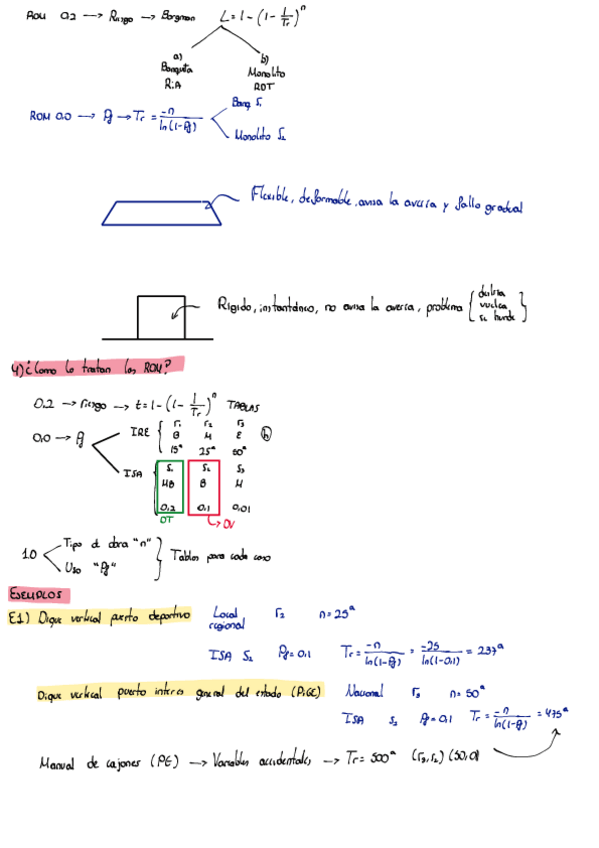 ROM 0.2 → Riesgo → Borgman L = 1 - (1 - 1/Tr)^n
a) Banqueta RIA
b) Monolito ROT
ROM 0.0 → Pf → Tr = -n / ln(1-Pf)
Banq S1
Monolito S2
Flexible, deformable, avisa la avería y fallo gradual
Rígido, instantáneo, no avisa la avería, problema [ desliza vuelca se hunde }
4) ¿Como lo tratan las ROM?
0.2 → riesgo → t = 1 - (1 - 1/Tr)^n TABLAS
0.0 → Pf
IRE { r1 r2 r3
B M E (h)
15ª 25ª 50ª
ISA { S1 S2 S3
MB B M
0,2 0,1 0,01
DT → DV
1.0
Tipo de obra "n"
Uso "Pf"
} Tablas para cada caso
EJEMPLOS
E1) Dique vertical puerto deportivo Local regional r2 n=25ª
ISA S2 Pf=0,1 Tr = -n / ln(1-Pf) = -25 / ln(1-0,1) = 237ª
Dique vertical puerto interés general del estado (PIGE) Nacional r3 n=50ª
ISA S2 Pf=0,1 Tr = -n / ln(1-Pf) = 475ª
Manual de cajones (PE) → Variables accidentales → Tr=500ª (r3,r2) (50,0)